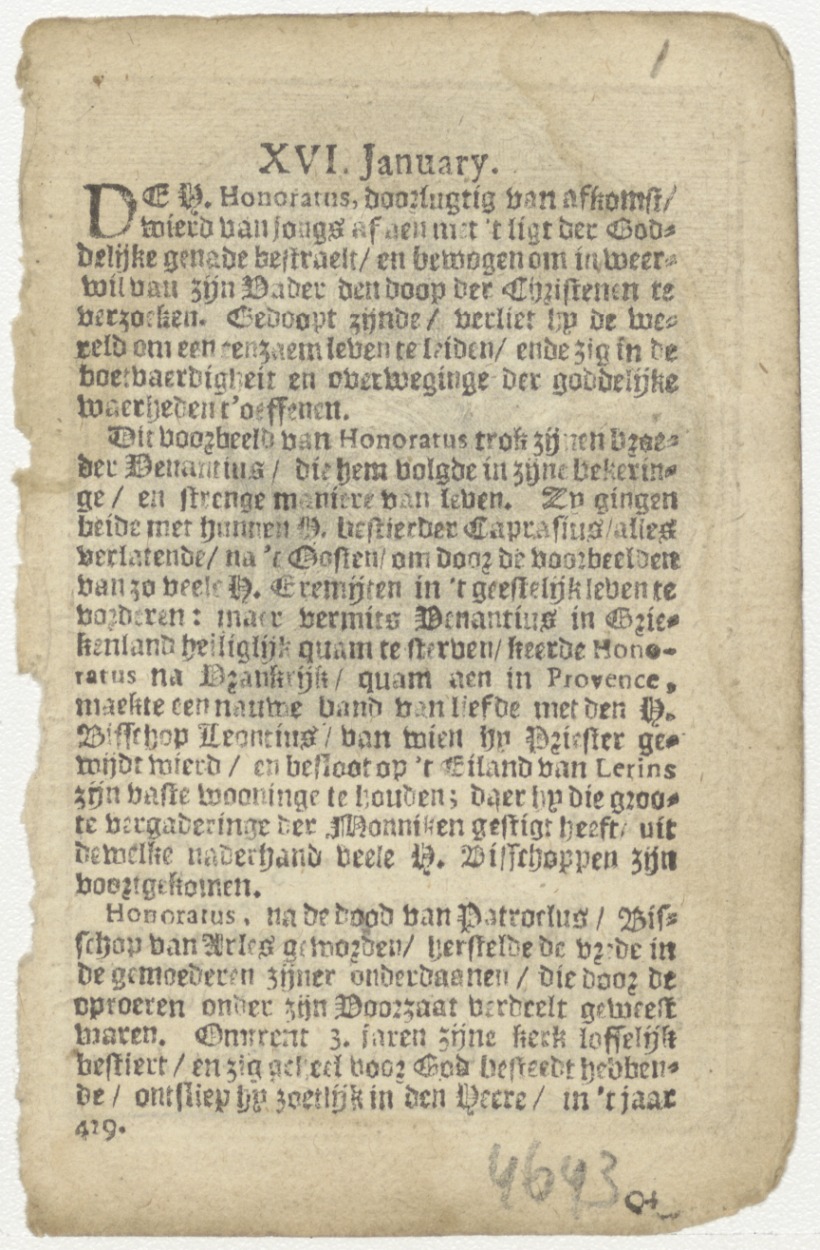 1
XVI. January.
DE H. Honoratus, doorlugtig van afkomst/
wierd van jongs af aen met 't ligt der God-
delijke genade bestraelt/ en bewogen om in weer-
wil van zijn Vader den doop der Christenen te
verzoeken. Gedoopt zijnde/ verliet hy de we-
reld om een eenzaem leven te leiden/ ende zig in de
boetvaerdigheit en overweginge der goddelijke
waerheden t'oeffenen.
Dit voorbeeld van Honoratus trok zijnen broe-
der Venantius/ die hem volgde in zijne bekerin-
ge/ en strenge maniere van leven. Zy gingen
beide met hunnen H. bestierder Caprasius/alles
verlatende/ na 't Oosten/ om door de voorbeelden
van zo veele H. Eremijten in 't geestelijk leven te
vorderen: maer vermits Venantius in Grie-
kenland heiliglijk quam te sterven/ keerde Hono-
ratus na Vrankrijk/ quam aen in Provence,
maekte een nauwe band van liefde met den H.
Bisschop Leontius/ van wien hy Priester ge-
wijdt wierd/ en besloot op 't Eiland van Lerins
zijn vaste wooninge te houden; daer hy die groo-
te vergaderinge der Monniken gestigt heeft/ uit
dewelke naderhand veele H. Bisschoppen zijn
voortgekomen.
Honoratus, na de dood van Patroclus/ Bis-
schop van Arles geworden/ herstelde de vrede in
de gemoederen zijner onderdaanen/ die door de
oproeren onder zijn Voorzaat verdeelt geweest
waren. Omtrent 3. jaren zijne kerk loffelijk
bestiert/ en zig geheel voor God besteedt hebben-
de/ ontsliep hy zoetlijk in den Heere/ in 't jaar
429.
4643